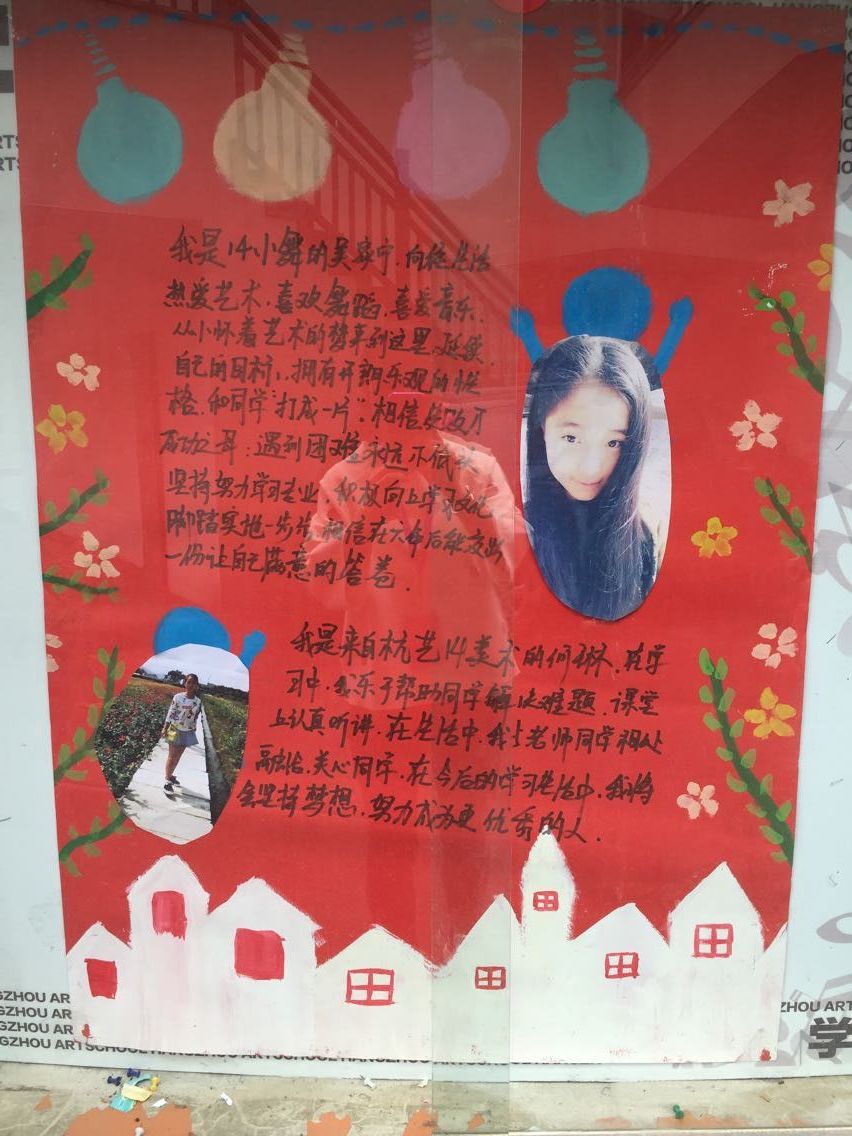 我是14小舞的吴家宁.向往生活
热爱艺术,喜欢舞蹈,喜爱音乐.
从小怀着艺术的梦来到这里.延续
自己的目标,拥有开朗乐观的性
格,和同学"打成一片",相信失败乃
成功之母;遇到困难永远不低头
坚持努力学习专业,积极向上学习文化
脚踏实地一步步.相信在六年后能交出
一份让自己满意的答卷.
我是来自杭艺14美术的何琳.在学
习中,我乐于帮助同学解决难题.课堂
上认真听讲.在生活中.我与老师同学相处
融洽.关心同学.在今后的学习生活中.我将
会坚持梦想.努力成为更优秀的人.
GZHOU AR
GZHOU AR
GZHOU AR
GZHOU ARTSCHOOL HANGZHOU ARTSCHOOL HANGZHOU
ZHOU ART
学